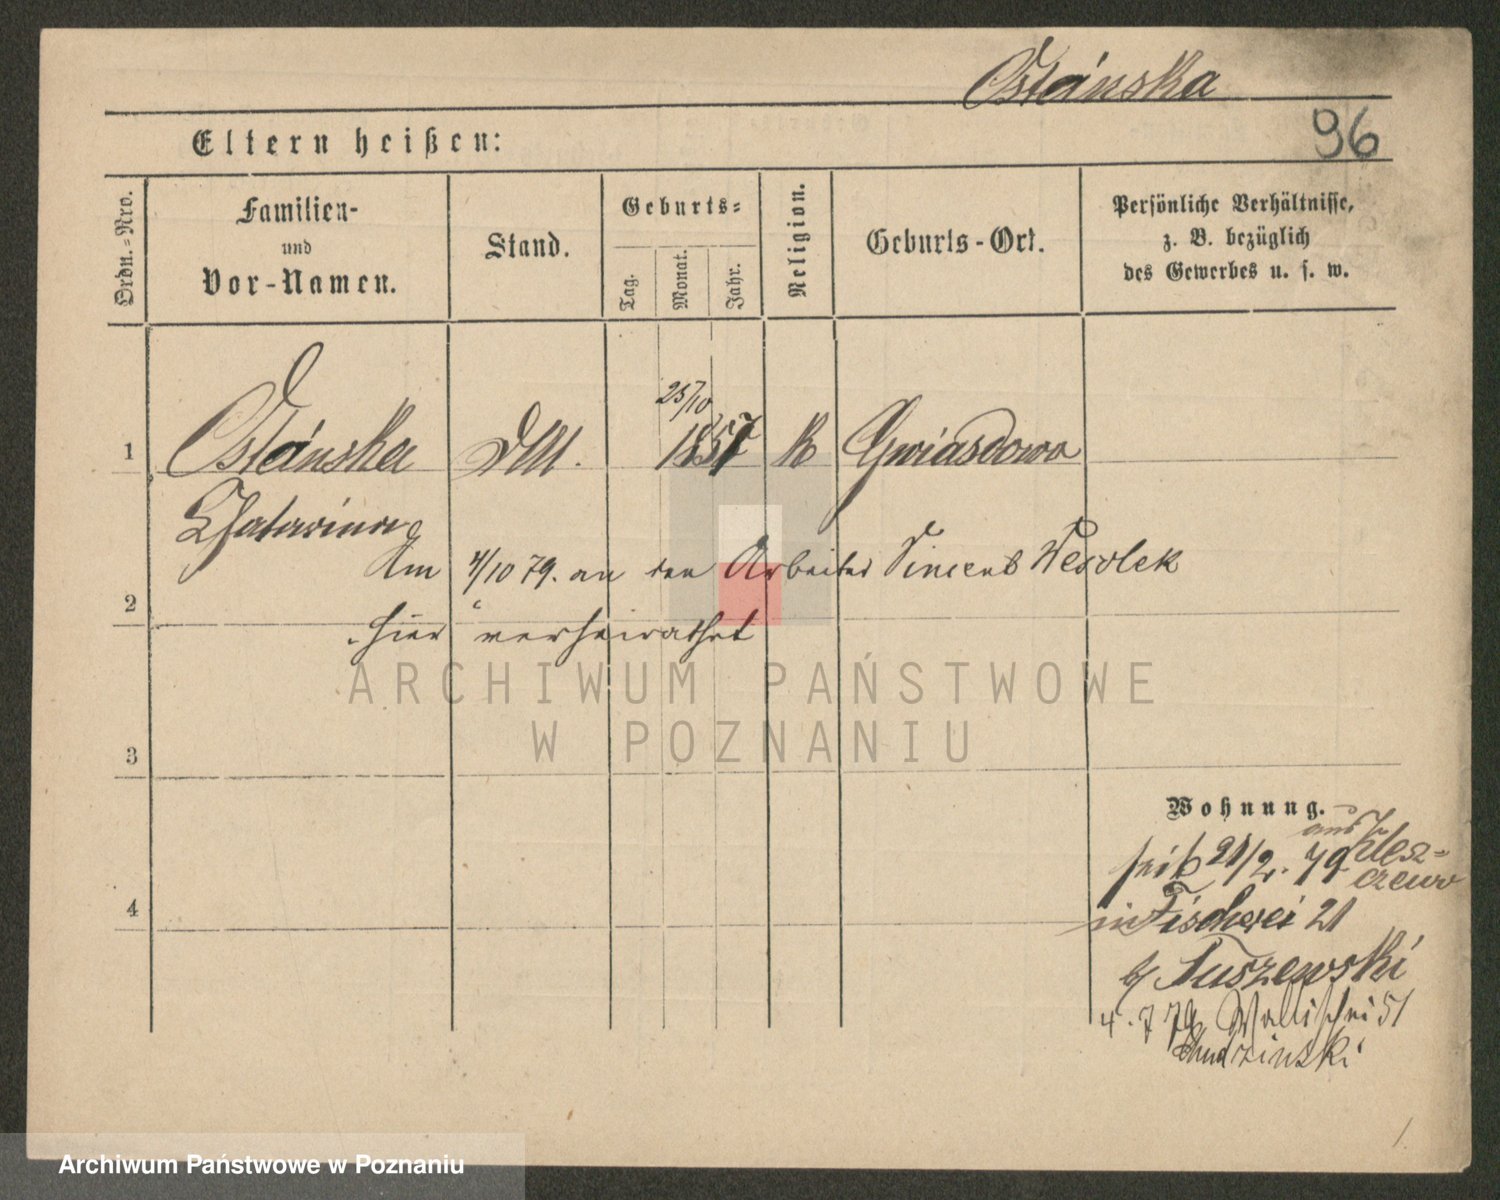 Ostánska
96
Eltern heißen:
Ordn.-Nro.
Familien-
und
Vor-Namen.
Stand.
Geburts-
Tag.
Monat.
Jahr.
Religion.
Geburts-Ort.
Persönliche Verhältnisse,
z. B. bezüglich
des Gewerbes u. s. w.
25/10
1 Ostánska 1857 K Gwiasdowo
Chatarina
Am 4/10 79. an den Arbeiter Vincent Wesolek
2
hier verheirathet
ARCHIWUM PAŃSTWOWE
W POZNANIU
3
Wohnung.
aus Klesz-
seit 21/2. 79 czewo
in Fischerei 21
b/ Tuszewski
4
4.7 79 Wallischei 51
Chudzinski
1.
Archiwum Państwowe w Poznaniu